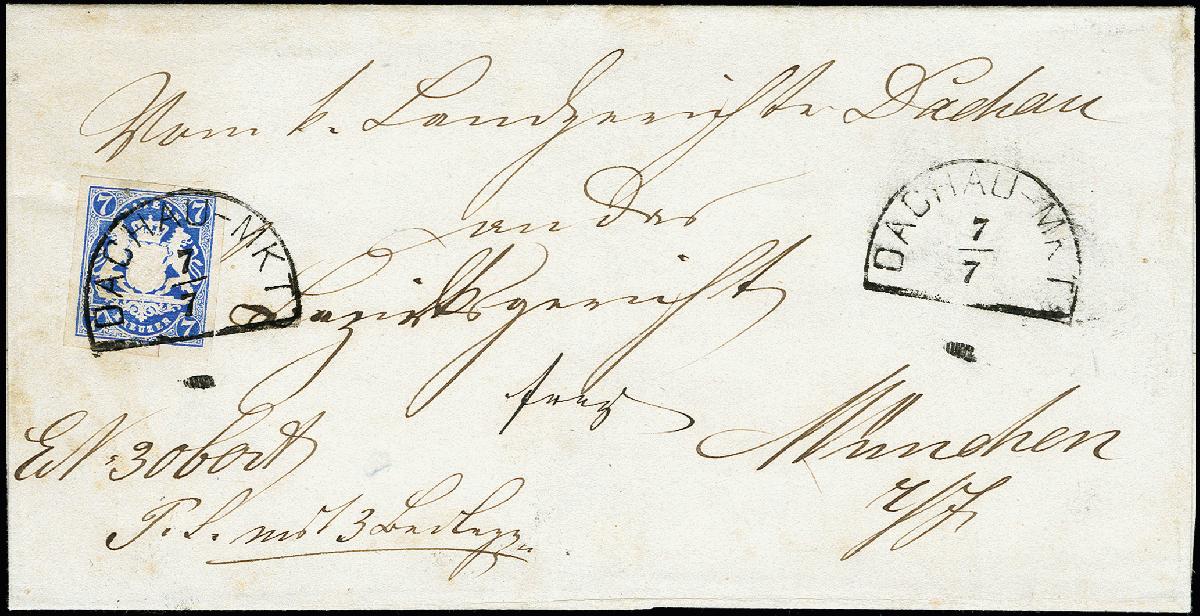 Vom k. Landgerichte Dachau
an das
Bezirksgericht
München
7 7
KREUZER
7 7
DACHAU-MKT
7
7
DACHAU-MKT
7
7
frei
EN: 30
P. S. mit 3 Beilagen